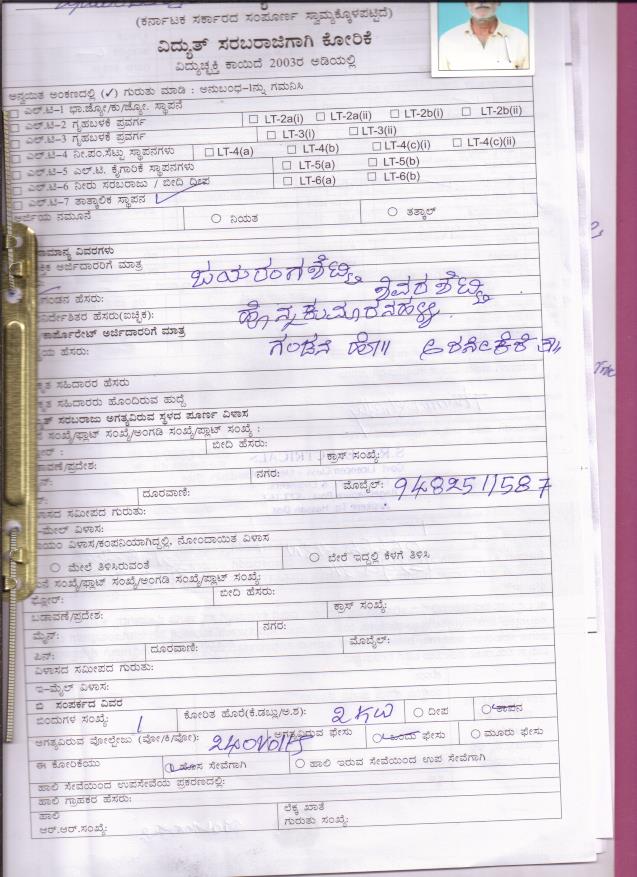 (ಕರ್ನಾಟಕ ಸರ್ಕಾರದ ಸಂಪೂರ್ಣ ಸ್ವಾಮ್ಯಕ್ಕೊಳಪಟ್ಟಿದೆ)
ವಿದ್ಯುತ್ ಸರಬರಾಜಿಗಾಗಿ ಕೋರಿಕೆ
ವಿದ್ಯುಚ್ಛಕ್ತಿ ಕಾಯಿದೆ 2003ರ ಅಡಿಯಲ್ಲಿ
ಅನ್ವಯಿತ ಅಂಕಣದಲ್ಲಿ (✓) ಗುರುತು ಮಾಡಿ : ಅನುಬಂಧ-1ನ್ನು ಗಮನಿಸಿ
ಎಲ್.ಟಿ-1 ಭಾ.ಜ್ಯೋ/ಕು/ಜ್ಯೋ. ಸ್ಥಾಪನೆ
ಎಲ್.ಟಿ-2 ಗೃಹಬಳಕೆ ಪ್ರವರ್ಗ LT-2a(i) LT-2a(ii) LT-2b(i) LT-2b(ii)
ಎಲ್.ಟಿ-3 ಗೃಹಬಳಕೆ ಪ್ರವರ್ಗ LT-3(i) LT-3(ii)
ಎಲ್.ಟಿ-4 ನೀ.ಪಂ.ಸೆಟ್ಟು ಸ್ಥಾಪನಗಳು LT-4(a) LT-4(b) LT-4(c)(i) LT-4(c)(ii)
ಎಲ್.ಟಿ-5 ಎಲ್.ಟಿ. ಕೈಗಾರಿಕೆ ಸ್ಥಾಪನಗಳು LT-5(a) LT-5(b)
ಎಲ್.ಟಿ-6 ನೀರು ಸರಬರಾಜು / ಬೀದಿ ದೀಪ LT-6(a) LT-6(b)
ಎಲ್.ಟಿ-7 ತಾತ್ಕಾಲಿಕ ಸ್ಥಾಪನ
ಅರ್ಜಿಯ ನಮೂನೆ ನಿಯತ ತತ್ಕಾಲ್
ಸಾಮಾನ್ಯ ವಿವರಗಳು
ಅರ್ಜಿದಾರರಿಗೆ ಮಾತ್ರ
ಗಂಡನ ಹೆಸರು: ಶಿವರ ಶೆಟ್ಟಿ
ನಿರ್ದೇಶಿತರ ಹೆಸರು(ಐಚ್ಛಿಕ):
ಕಾರ್ಪೊರೇಟ್ ಅರ್ಜಿದಾರರಿಗೆ ಮಾತ್ರ
ಹೆಸರು: ಗಂಡನ ಹೋ||
ಸಹಿದಾರರ ಹೆಸರು
ಸಹಿದಾರರು ಹೊಂದಿರುವ ಹುದ್ದೆ
ಸರಬರಾಜು ಅಗತ್ಯವಿರುವ ಸ್ಥಳದ ಪೂರ್ಣ ವಿಳಾಸ
ಸಂಖ್ಯೆ/ಫ್ಲಾಟ್ ಸಂಖ್ಯೆ/ಅಂಗಡಿ ಸಂಖ್ಯೆ/ಪ್ಲಾಟ್ ಸಂಖ್ಯೆ :
ಬೀದಿ ಹೆಸರು:
ಕ್ರಾಸ್ ಸಂಖ್ಯೆ:
ನಗರ:
ದೂರವಾಣಿ: ಮೊಬೈಲ್: 9482511587
ಸಮೀಪದ ಗುರುತು:
ವಿಳಾಸ:
ವಿಳಾಸ/ಕಂಪನಿಯಾಗಿದ್ದಲ್ಲಿ, ನೋಂದಾಯಿತ ವಿಳಾಸ
ಮೇಲೆ ತಿಳಿಸಿರುವಂತೆ ಬೇರೆ ಇದ್ದಲ್ಲಿ ಕೆಳಗೆ ತಿಳಿಸಿ
ಸಂಖ್ಯೆ/ಫ್ಲಾಟ್ ಸಂಖ್ಯೆ/ಅಂಗಡಿ ಸಂಖ್ಯೆ/ಪ್ಲಾಟ್ ಸಂಖ್ಯೆ:
ಫ್ಲೋರ್: ಬೀದಿ ಹೆಸರು:
ಬಡಾವಣೆ/ಪ್ರದೇಶ: ಕ್ರಾಸ್ ಸಂಖ್ಯೆ:
ಮೈನ್: ನಗರ:
ಪಿನ್: ದೂರವಾಣಿ: ಮೊಬೈಲ್:
ವಿಳಾಸದ ಸಮೀಪದ ಗುರುತು:
ಇ-ಮೈಲ್ ವಿಳಾಸ:
ಬಿ ಸಂಪರ್ಕದ ವಿವರ
ಬಿಂದುಗಳ ಸಂಖ್ಯೆ: 1 ಕೋರಿತ ಹೊರೆ(ಕಿ.ಡಬ್ಲು/ಅ.ಶ): 2KW ದೀಪ ತಾಪನ
ಅಗತ್ಯವಿರುವ ವೋಲ್ಟೇಜು (ವೋ/ಕಿ/ವೋ): 240Volts ಅಗತ್ಯವಿರುವ ಫೇಸು ಒಂದು ಫೇಸು ಮೂರು ಫೇಸು
ಈ ಕೋರಿಕೆಯು ಹೊಸ ಸೇವೆಗಾಗಿ ಹಾಲಿ ಇರುವ ಸೇವೆಯಿಂದ ಉಪ ಸೇವೆಗಾಗಿ
ಹಾಲಿ ಸೇವೆಯಿಂದ ಉಪಸೇವೆಯ ಪ್ರಕರಣದಲ್ಲಿ:
ಹಾಲಿ ಗ್ರಾಹಕರ ಹೆಸರು:
ಹಾಲಿ ಲೆಕ್ಕ ಖಾತೆ
ಆರ್.ಆರ್.ಸಂಖ್ಯೆ: ಗುರುತು ಸಂಖ್ಯೆ: